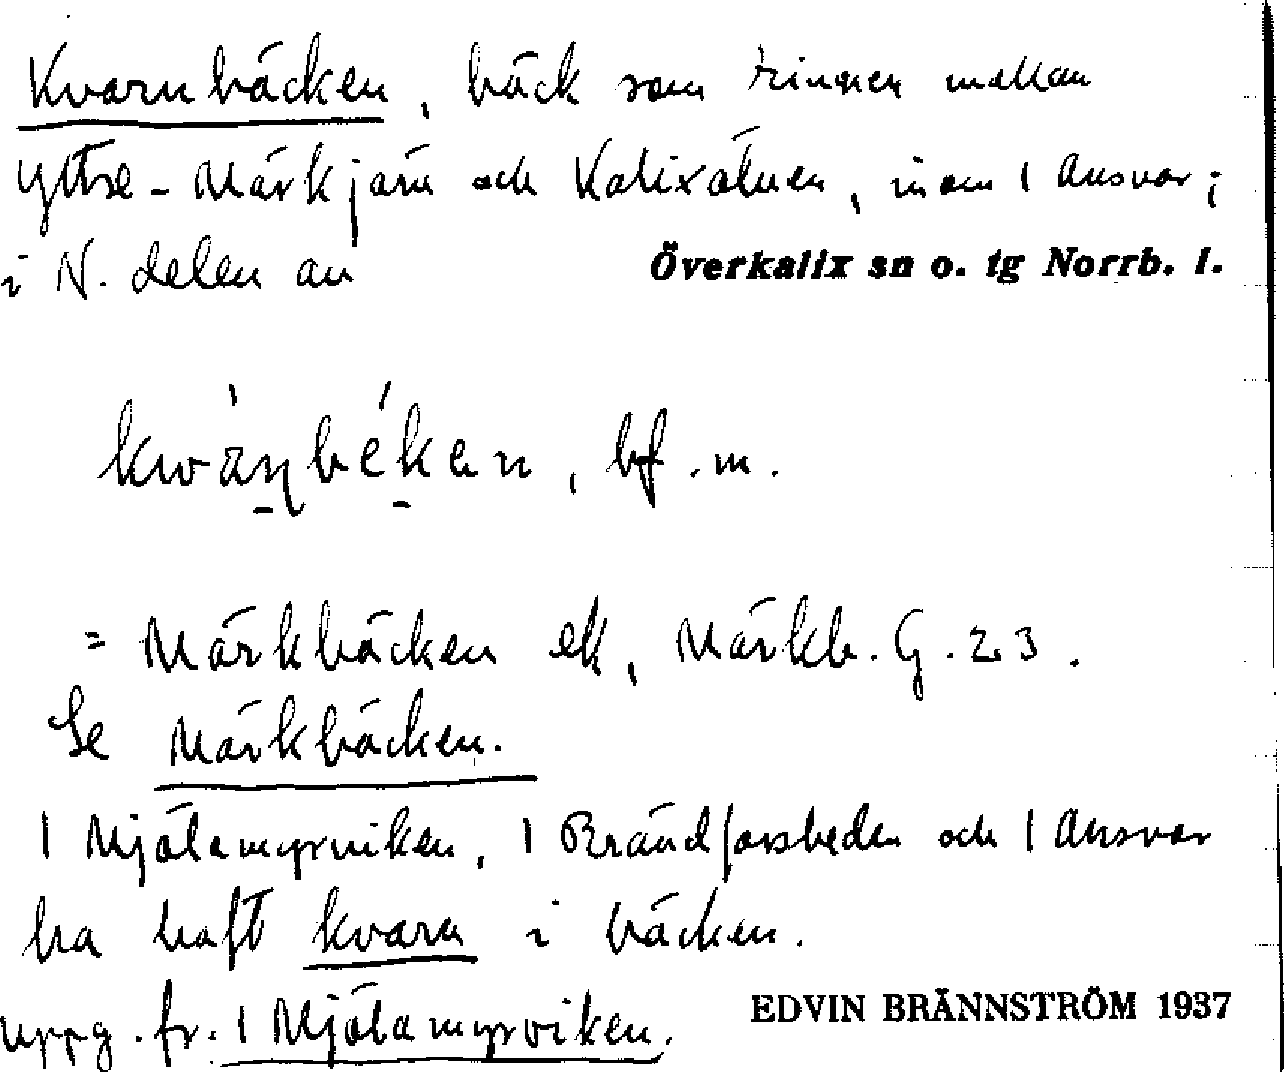 Kvarnbäcken, bäck som rinner mellan
Yttre-Märkjärn och Kalixälven, inom 1 Ansvar;
i N. delen av Överkalix sn o. tg Norrb. l.
kwāŋbékan, bf. m.
= Märkbäcken ek, Märkb. G. 23.
Se Märkbäcken.
1 Mjölamyrviken, 1 Brändforsheden och 1 Ansvar
ha haft kvarn i bäcken.
uppg. fr. 1 Mjölamyrviken.
EDVIN BRÄNNSTRÖM 1937